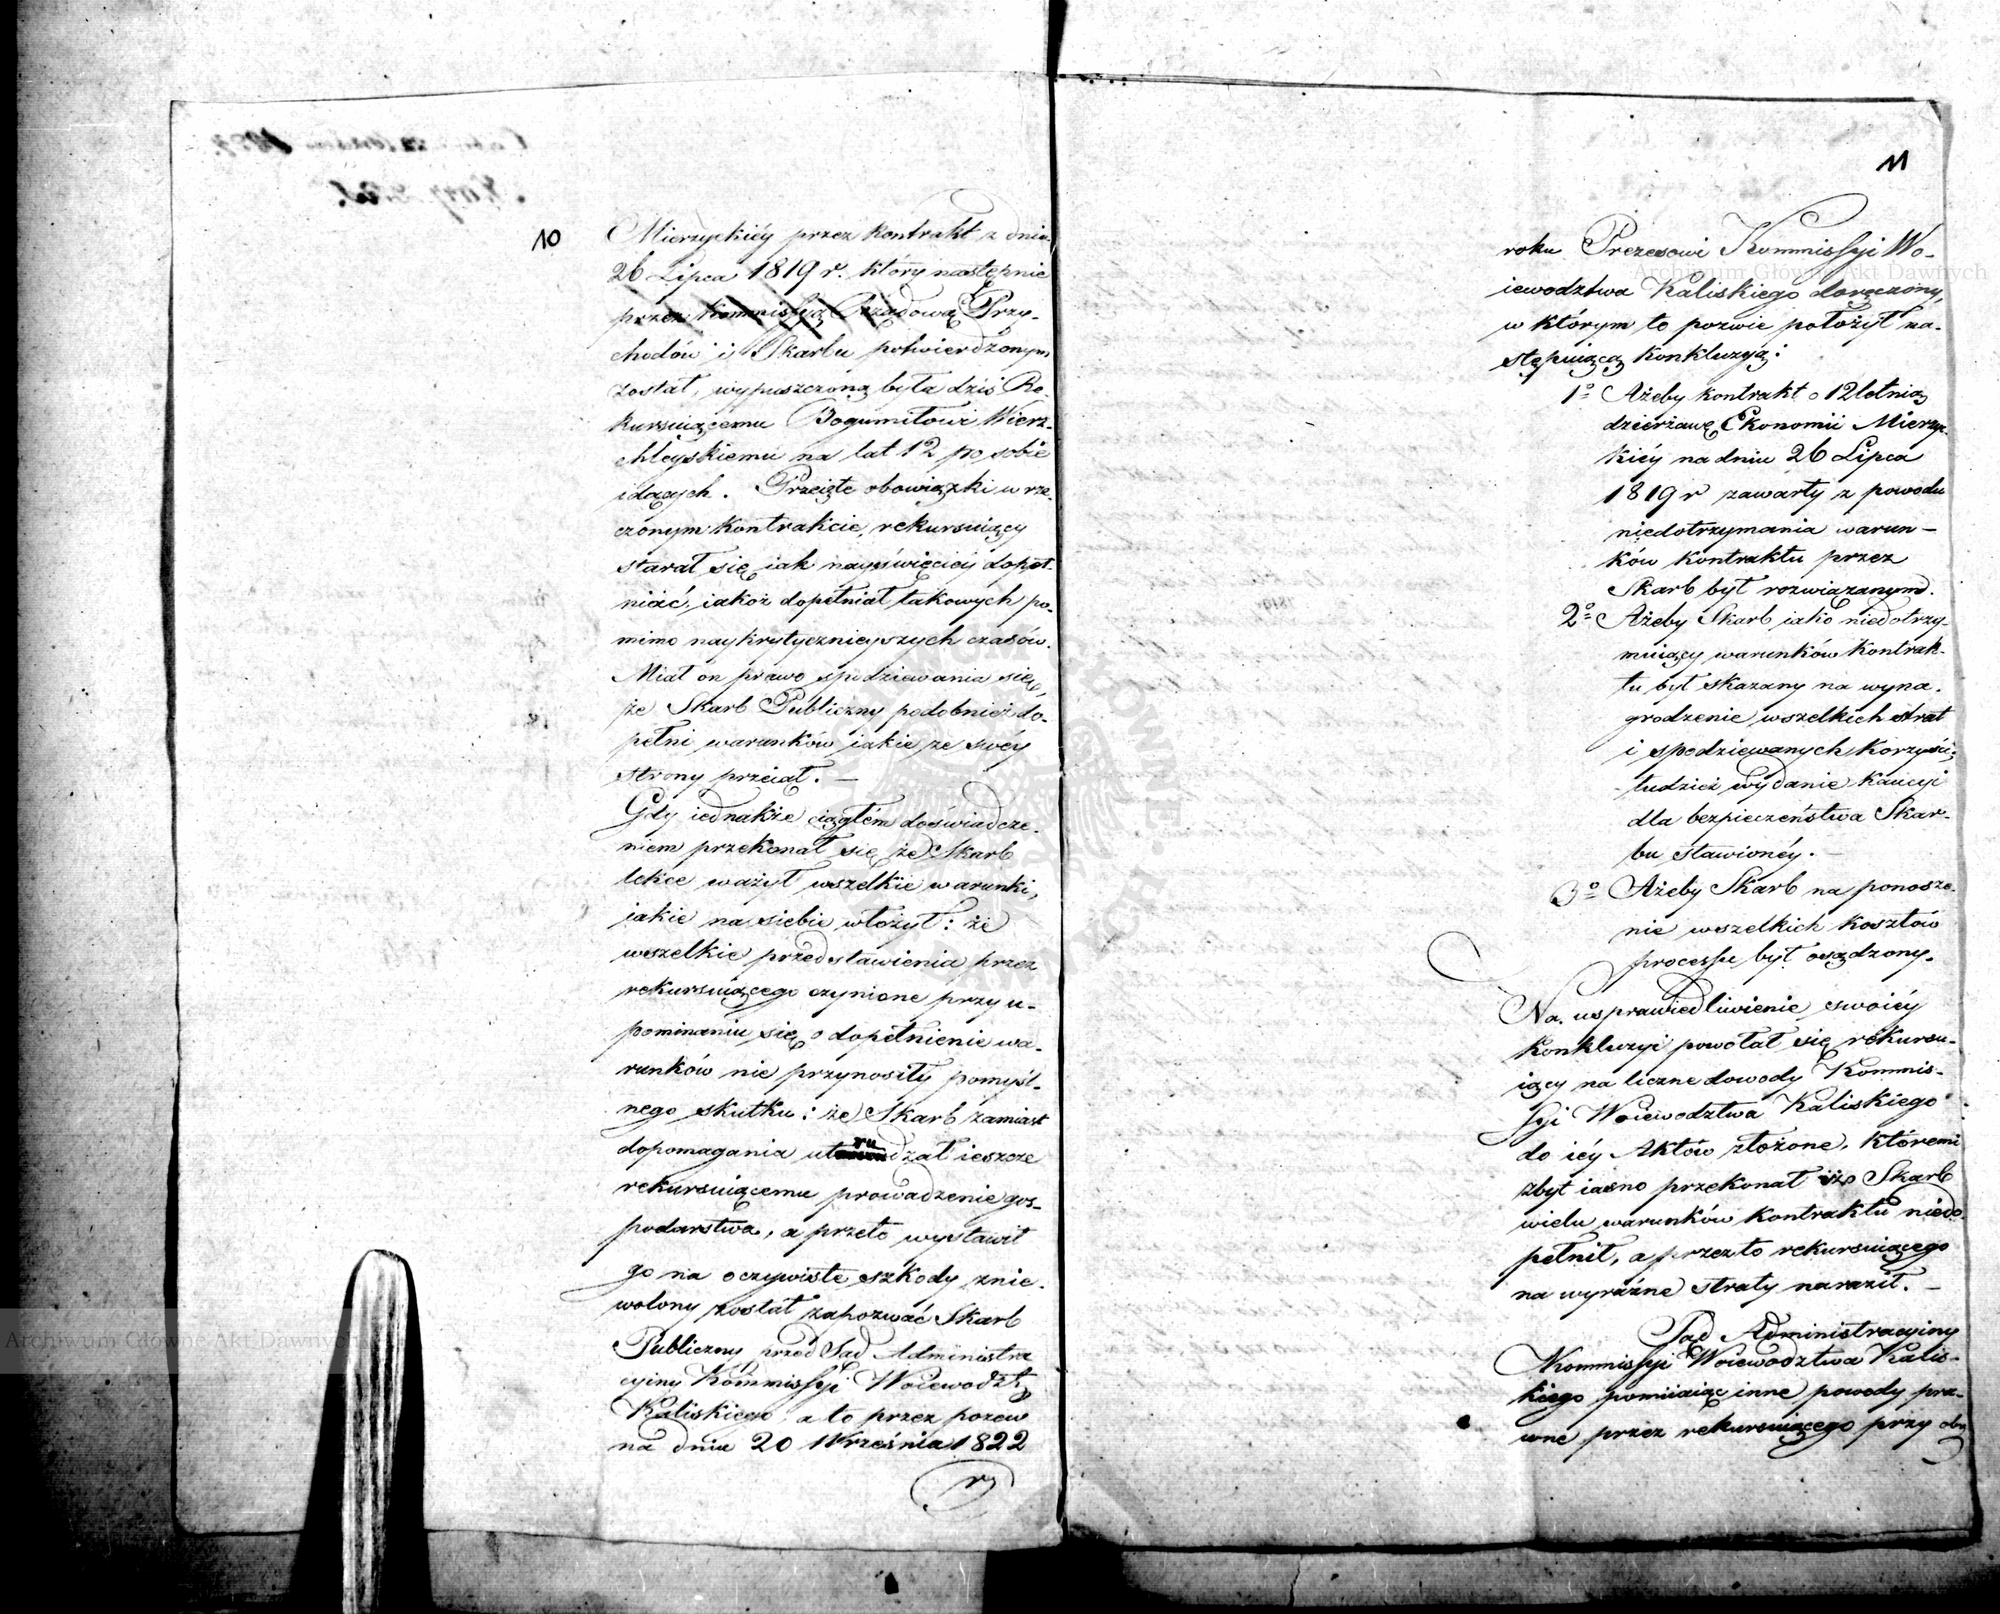 10
Mierzyckiéy przez kontrakt z dnia
26 Lipca 1819 r. który następnie
przez Kommissyą Rządową Przy-
chodów i Skarbu potwierdzonym
został, wypuszczoną była dziś Re-
kursuiącemu Bogumiłowi Wierz-
chleyskiemu na lat 12 po sobie
idących. Przeięte obowiązki w rze-
czonym kontrakcie, rekursuiący
starał się iak nayświęciéy dopeł-
niać, iakoż dopełniał takowych po-
mimo naykrytycznieyszych czasów.
Miał on prawo spodziewania się,
że Skarb Publiczny podobnież do-
pełni warunków iakie ze swéy
strony przeiął. —
Gdy iednakże ciągłém doświadcze-
niem przekonał się że Skarb
lekce ważył wszelkie warunki,
iakie na siebie włożył: że
wszelkie przedstawienia przez
rekursuiącego czynione przy u-
pominaniu się o dopełnienie wa-
runków nie przynosiły pomyśl-
nego skutku: że Skarb zamiast
dopomagania utrudzał ieszcze
rekursuiącemu prowadzenie gos-
podarstwa, a przeto wystawił
go na oczywiste szkody, znie-
wolony został zapozwać Skarb
Publiczny przed Sąd Administra
cyiny Kommissyi Woiewodzt:
Kaliskiego, a to przez pozew
na dniu 20 Września 1822
11
roku Prezesowi Kommissyi Wo-
iewodztwa Kaliskiego doręczony,
w którym to pozwie położył na-
stępuiącą konkluzyą:
1º Ażeby kontrakt o 12letnią
dzierżawę Ekonomii Mierzyc-
kiéy na dniu 26 Lipca
1819 r zawarty z powodu
niedotrzymania warun-
ków kontraktu przez
Skarb był rozwiązanym.
2º Ażeby Skarb iako niedotrzy-
muiący warunków kontrak-
tu był skazany na wyna-
grodzenie wszelkich strat
i spodziewanych korzyści,
tudzież wydanie kaucyi
dla bezpieczeństwa Skar-
bu stawionéy. —
3º Ażeby Skarb na ponosze-
nie wszelkich kosztów
processu był osądzony.
Na usprawiedliwienie swoiéy
konkluzyi powołał się rekursu-
iący na liczne dowody Kommis-
syi Woiewodztwa Kaliskiego
do iéy Aktów złożone, któremi
zbyt iasno przekonał iż Skarb
wielu warunków kontraktu niedo-
pełnił, a przezto rekursuiącego
na wyraźne straty naraził. —
Sąd Administracyiny
Kommissyi Woiewodztwa Kalis-
kiego pomiiaiąc inne powody pra-
wne przez rekursuiącego przy
Archiwum Główne Akt Dawnych
Archiwum Główne Akt Dawnych